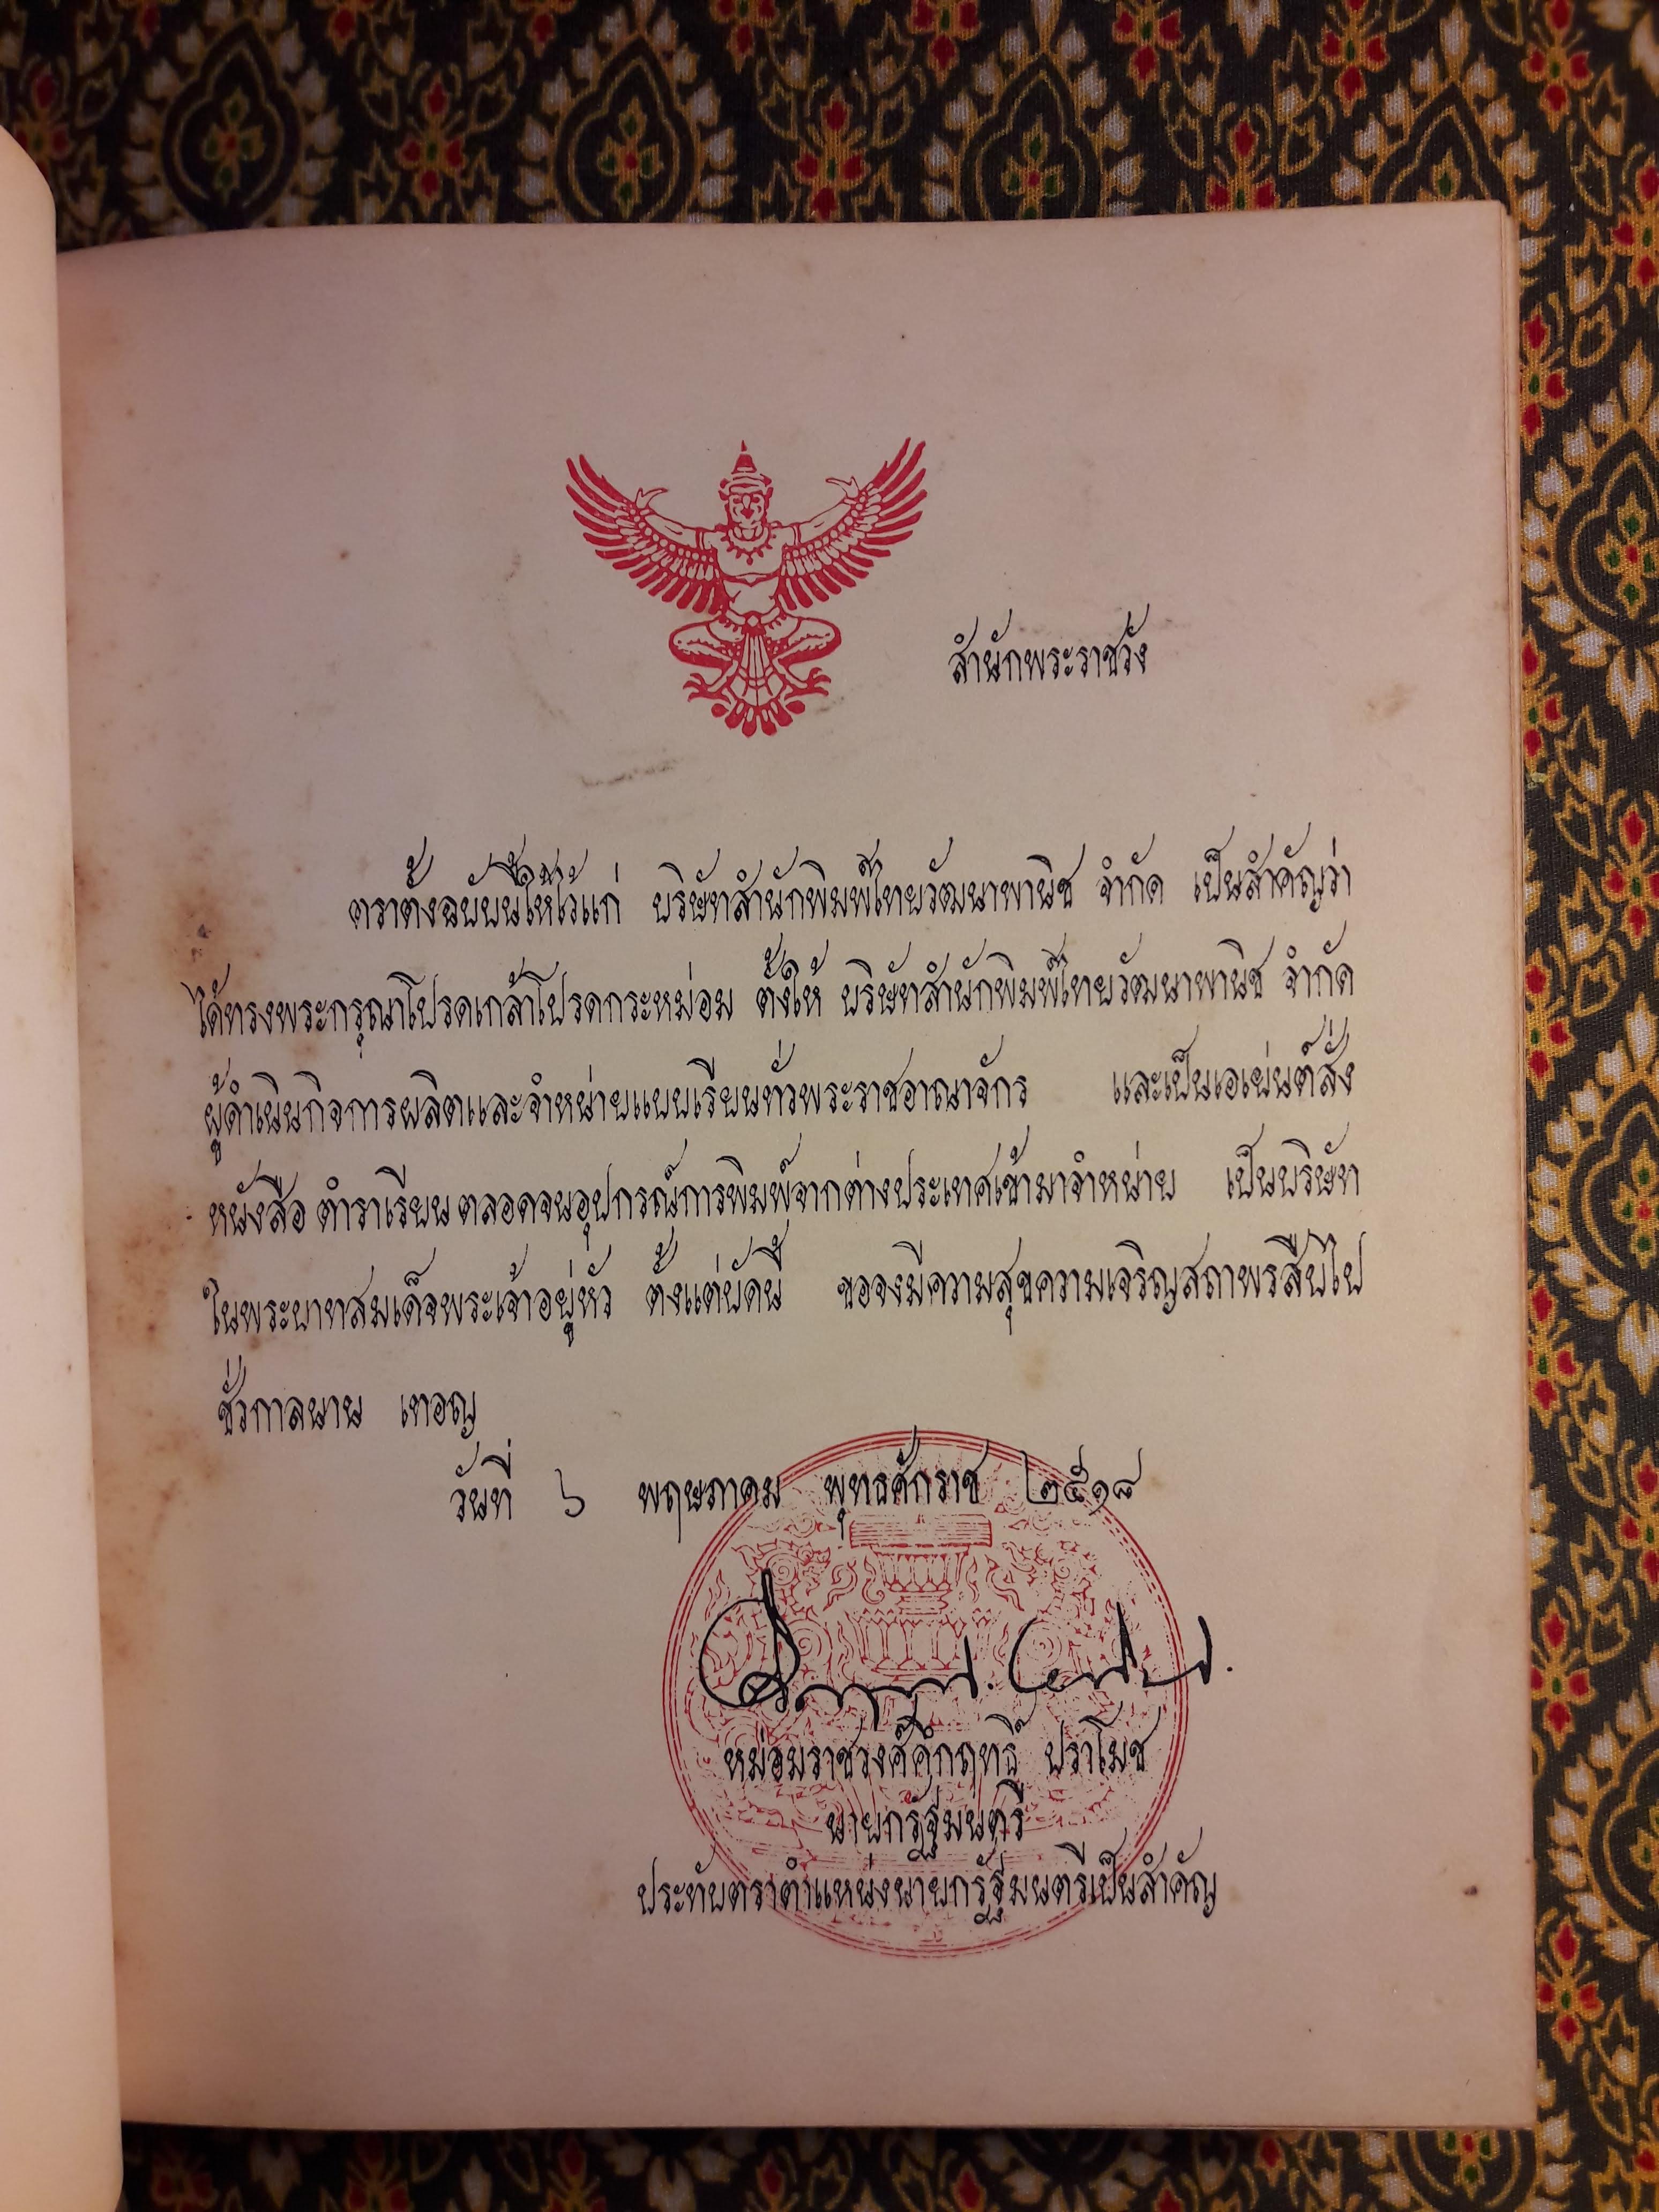 สำนักพระราชวัง
ตราตั้งฉบับนี้ให้ไว้แก่ บริษัทสำนักพิมพ์ไทยวัฒนาพานิช จำกัด เป็นสำคัญว่า
ได้ทรงพระกรุณาโปรดเกล้าโปรดกระหม่อม ตั้งให้ บริษัทสำนักพิมพ์ไทยวัฒนาพานิช จำกัด
ผู้ดำเนินกิจการผลิตและจำหน่ายแบบเรียนทั่วพระราชอาณาจักร และเป็นเอเย่นต์สั่ง
หนังสือ ตำราเรียน ตลอดจนอุปกรณ์การพิมพ์จากต่างประเทศเข้ามาจำหน่าย เป็นบริษัท
ในพระบาทสมเด็จพระเจ้าอยู่หัว ตั้งแต่บัดนี้ ขอจงมีความสุขความเจริญสถาพรสืบไป
ชั่วกาลนาน เทอญ
วันที่ ๖ พฤษภาคม พุทธศักราช ๒๕๑๘
หม่อมราชวงศ์คึกฤทธิ์ ปราโมช
นายกรัฐมนตรี
ประทับตราตำแหน่งนายกรัฐมนตรีเป็นสำคัญ